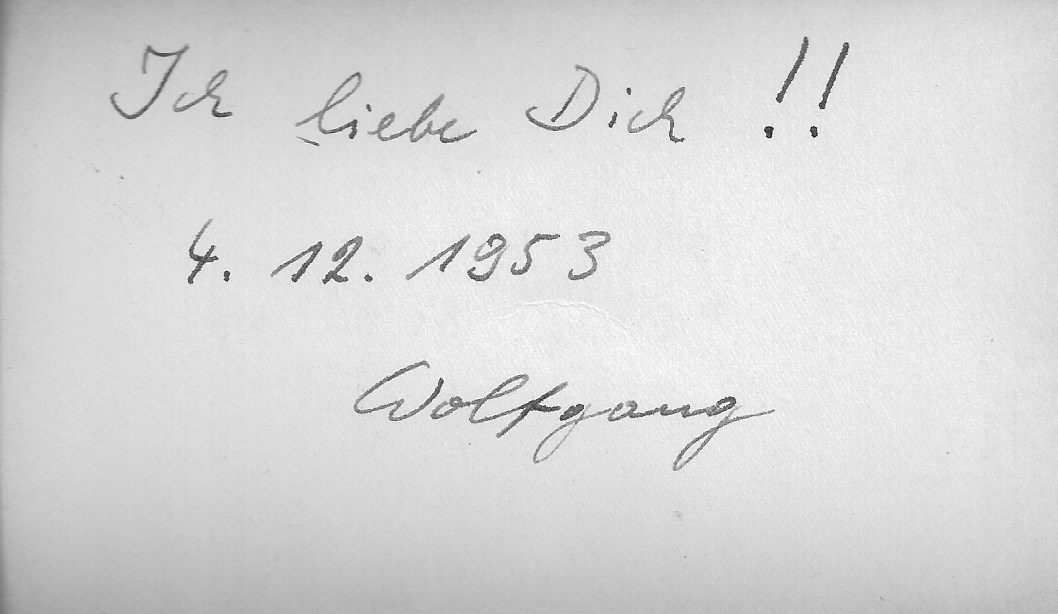 Ich liebe Dich !!
4. 12. 1953
Wolfgang